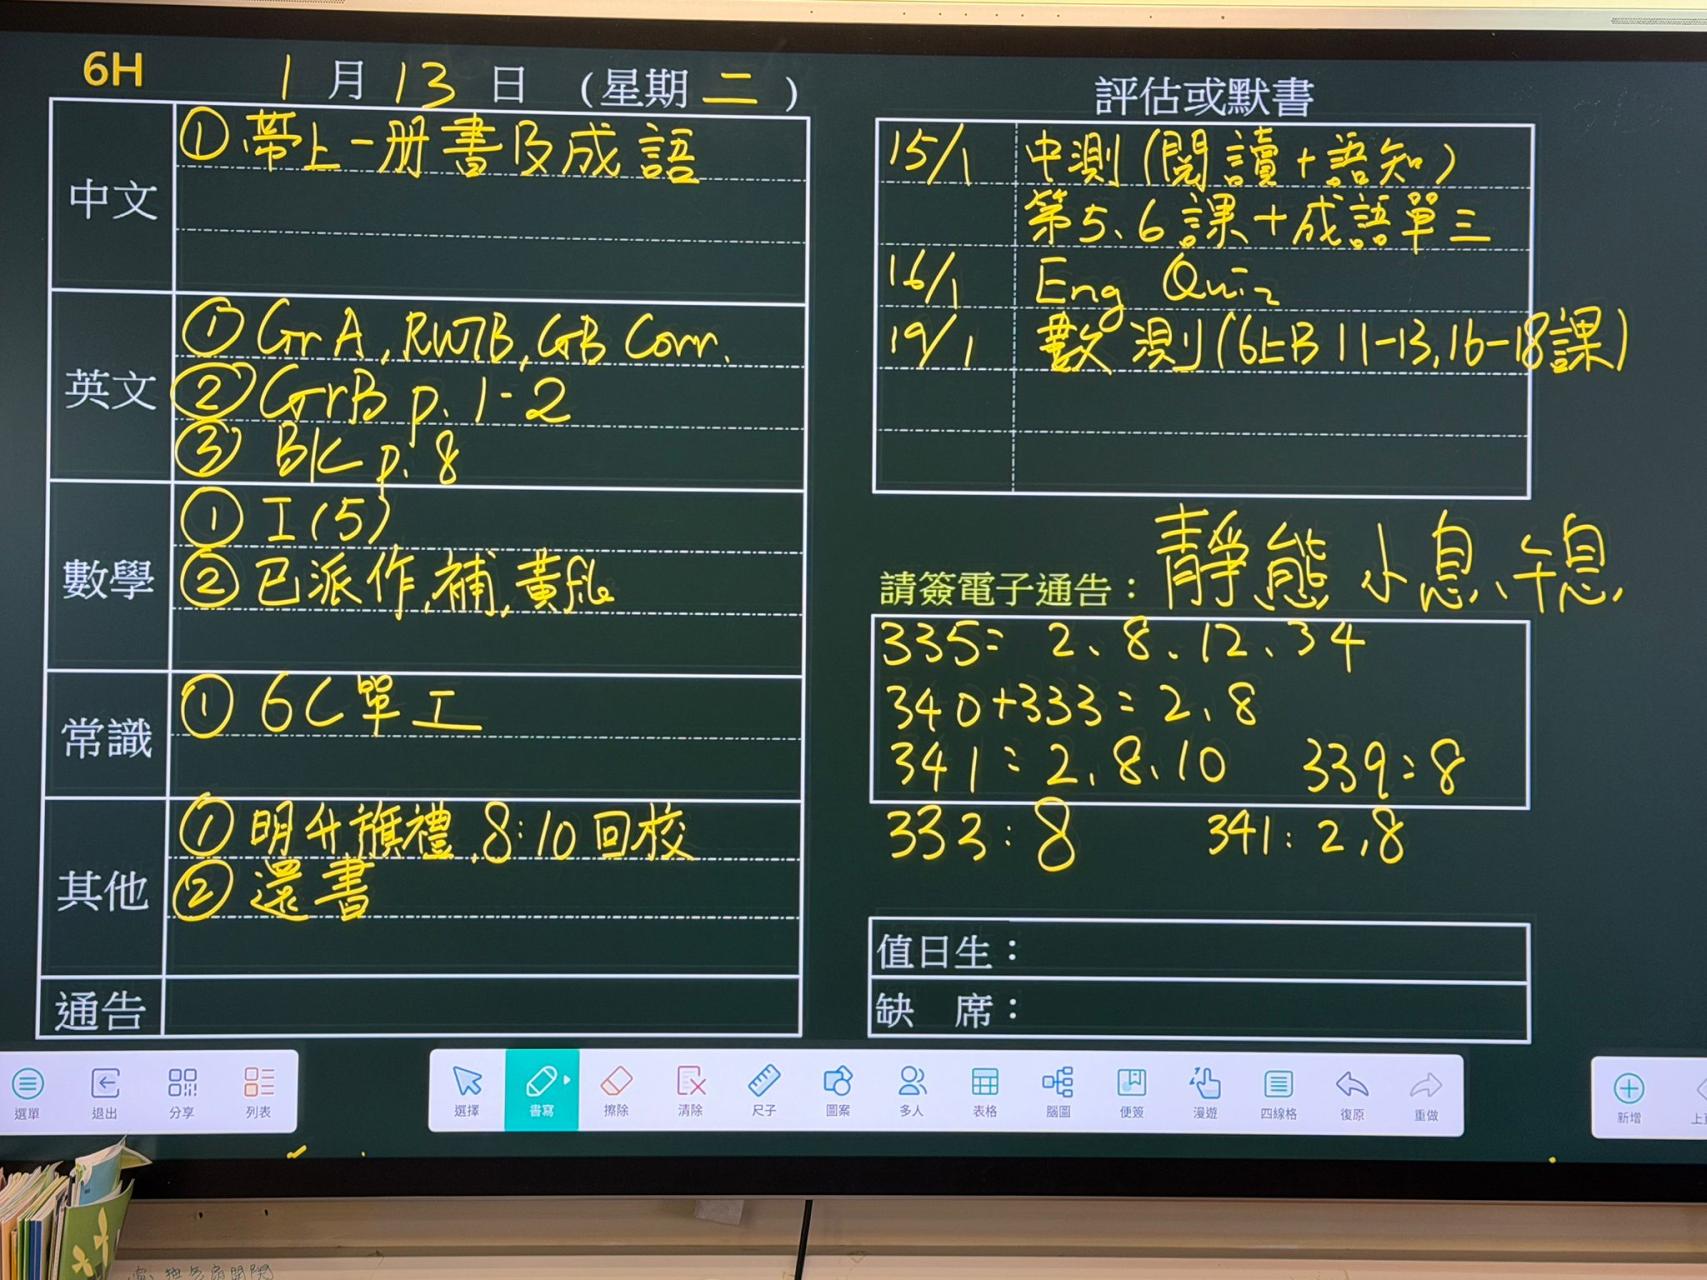 6H 1月13日 (星期二)
中文
①帶上一册書及成語
英文
①GrA, RWTB, GB Corr.
②GrB p. 1-2
③BK p. 8
數學
①工(5)
②已派作,補,黃file
常識
①6C單工
其他
①明升旗禮,8:10回校
②還書
通告
評估或默書
15/1 中測(閱讀+語知)
第5、6課+成語單三
16/1 Eng Quiz
19/1 數測(6上B 11-13,16-18課)
靜態小息、午息
請簽電子通告:
335: 2、8、12、34
340+333: 2、8
341: 2、8、10 339:8
333:8 341:2,8
值日生:
缺 席:
選單 退出 分享 列表
選擇 書寫 擦除 清除 尺子 圖案 多人 表格 腦圖 便簽 漫遊 四線格 復原 重做
新增